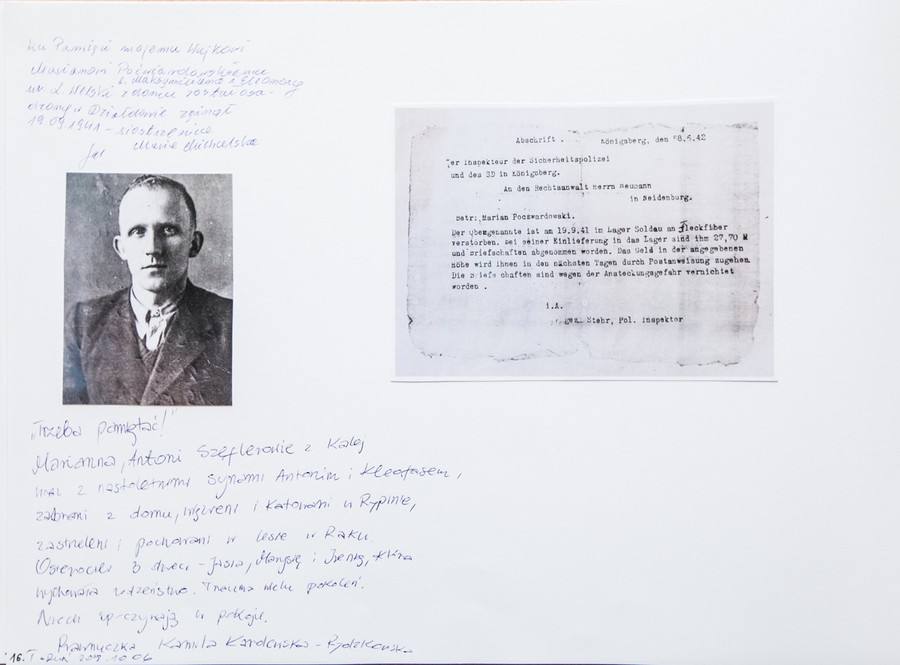 Ku Pamięci mojemu Wujkowi
Marianowi Poćwiardowskiemu
s. Maksymiliana i Eleonory
ur. z
w Działdowie zginął
19 09 1941 – siostrzenica
Maria Michalska
Abschrift . Königsberg, den 8.5.42
Der Inspekteur der Sicherheitspolizei
und des SD in Königsberg.
An den Rechtsanwalt Herrn Neumann
in Neidenburg.
Betr: Marian Poczwardowski.
Der Obengenannte ist am 19.9.41 im Lager Soldau an Fleckfiber
verstorben. Bei seiner Einlieferung in das Lager sind ihm 27,70 M
und Briefschaften abgenommen worden. Das Geld in der angegebenen
Höhe wird ihnen in den nächsten Tagen durch Postanweisung zugehen.
Die Briefschaften sind wegen der Ansteckungsgefahr vernichtet
worden .
i.A.
gez. Stehr, Pol. Inspektor
„Trzeba pamiętać!”
Marianna, Antoni Szeflerowie z Kałej
wraz z nastoletnimi synami Antonim i Kleofasem,
zabrani z domu, więzieni i katowani w Rypinie,
zastrzeleni i pochowani w lesie w Raku.
Osierocili 3 dzieci – Jasia, Marysię i Irenkę, które
wychowało rodzeństwo. Trauma wielu pokoleń.
Niech spoczywają w pokoju.
Prawnuczka Kamila
16. Toruń 10.06